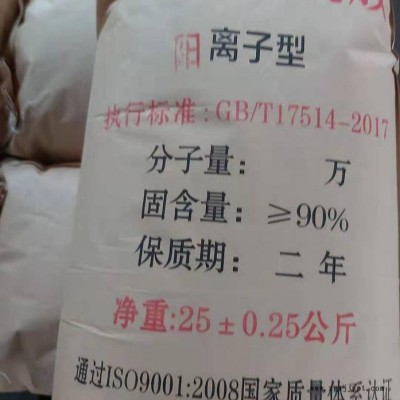 阳 离子型
执行标准:GB/T17514-2017
分子量: 万
固含量:≥90%
保质期:二年
净重:25±0.25公斤
通过ISO9001:2008国家质量体系认证